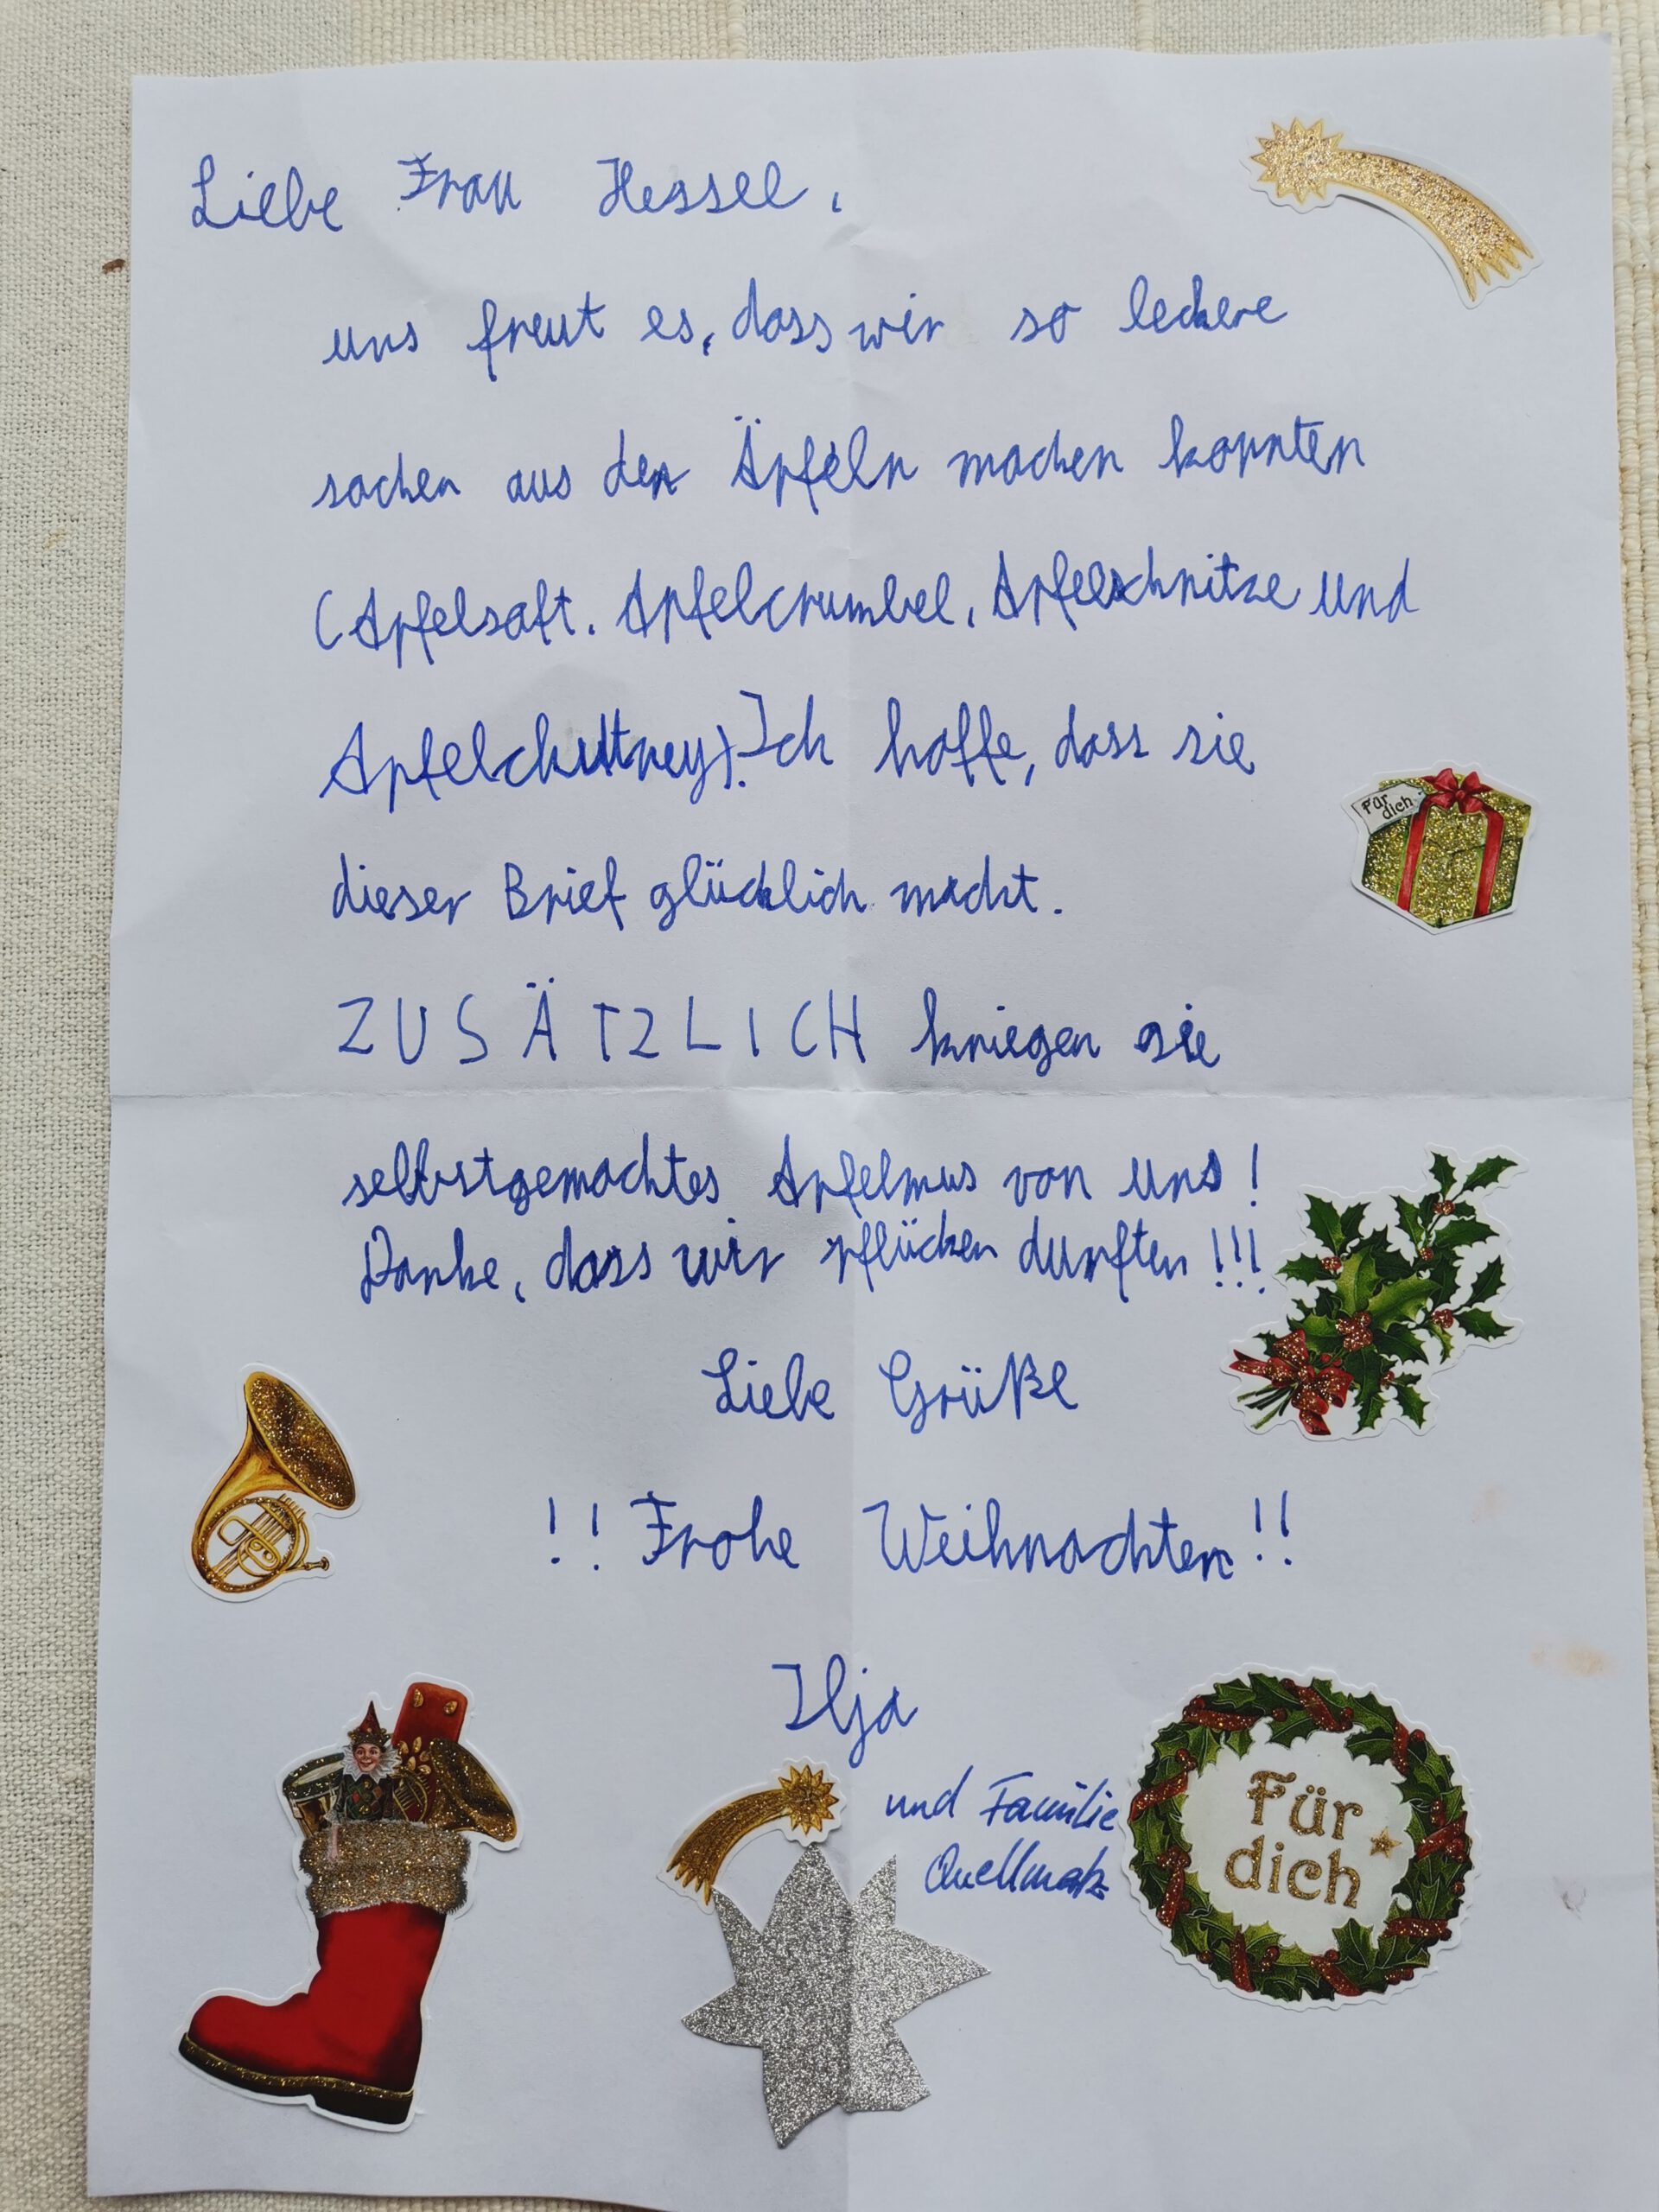 Liebe Frau Hessel,
uns freut es, dass wir so leckere
sachen aus den Äpfeln machen konnten
(Apfelsaft, Apfelcrumbel, Apfelschnitze und
Apfelchuttney). Ich hoffe, dass sie
Für
dich
dieser Brief glücklich macht.
ZUSÄTZLICH kriegen sie
selbstgemachtes Apfelmus von uns!
Danke, dass wir pflücken durften!!!
Liebe Grüße
!! Frohe Weihnachten!!
Ilja
und Familie
Für
dich